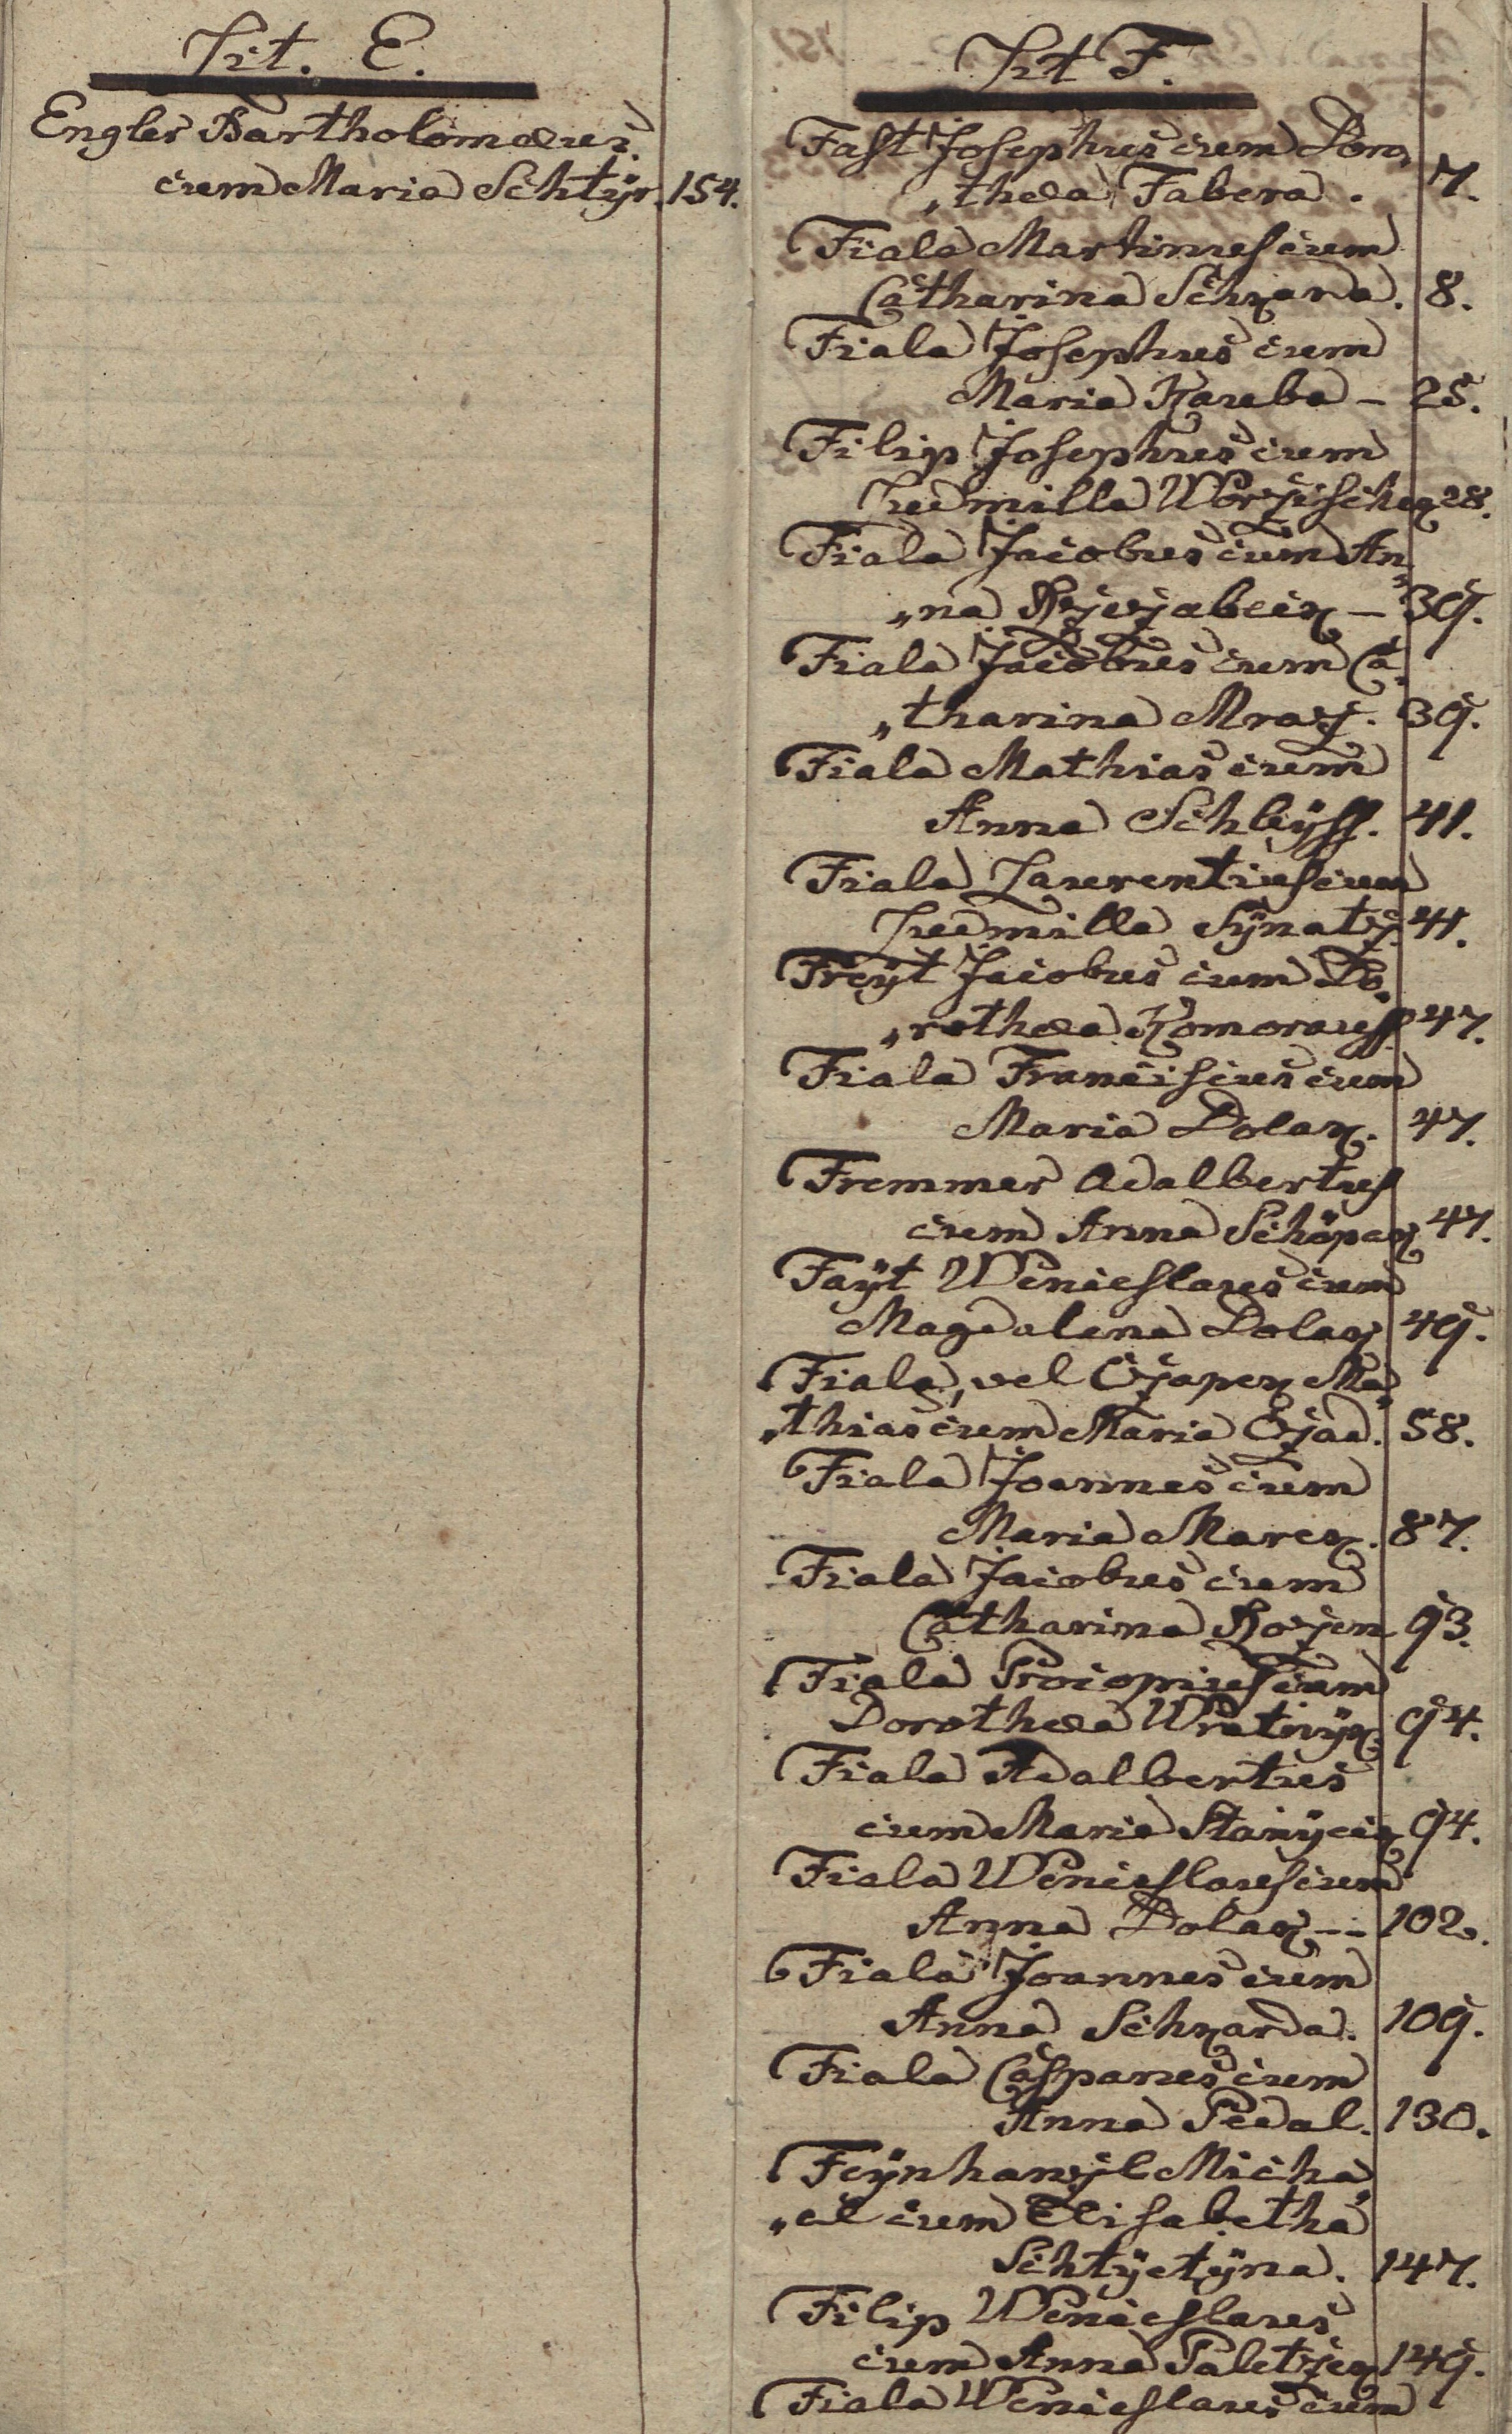 Lit. E.
Engler Bartholomæus
cum Maria Schtyr. 154.
Lit F.
Fast Josephus cum Doro,
„thea Fabera. 7.
Fiala Martinus cum
Catharina Schrara. 8.
Fiala Josephus cum
Maria Kauba – 25.
Filip Josephus cum
Ludmilla Worzischek 28.
Fiala Jacobus cum An,
„na Rzerzabek – 39.
Fiala Jacobus cum Ca,
„tharina Mraz. 39.
Fiala Mathias cum
Anna Schleyss. 41.
Fiala Laurentius cum
Ludmilla Synatz. 41.
Freyt Jacobus cum Do,
„rothea Komorauss 47.
Fiala Franciscus cum
Maria Dolax. 47.
Fremmer Adalbertus
cum Anna Schöpax 47.
Fayt Wenceslaus cum
Magdalena Dolax 49.
Fiala, vel Czapex Ma,
„thias cum Maria Czad. 58.
Fiala Joannes cum
Maria Marex. 87.
Fiala Jacobus cum
Catharina Rozen 93.
Fiala Procopius cum
Dorothea Wratnyx. 94.
Fiala Adalbertus
cum Maria 94.
Fiala Wenceslaus cum
Anna Dolax -- 102.
Fiala Joannes cum
Anna Schrarda. 109.
Fiala Casparus cum
Anna Pedal. 130.
Feynhanzl Micha,
„el cum Elisabetha
Schtyctyna. 147.
Filip Wenceslaus
cum Anna Paletzex 149.
Fiala Wenceslaus cum